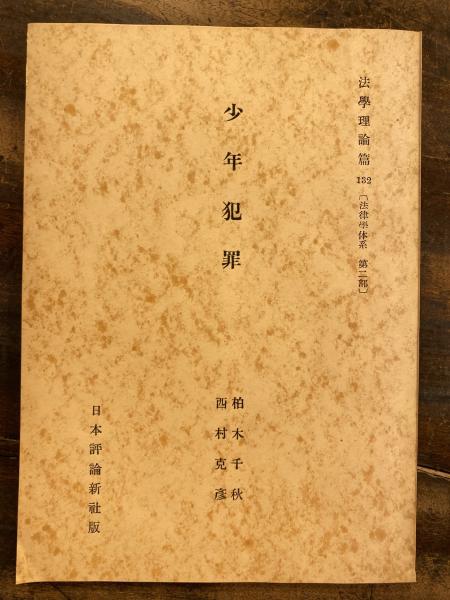 法學理論篇 132 〔法律學体系 第二部〕
少年犯罪
柏木千秋
西村克彦
日本評論新社版